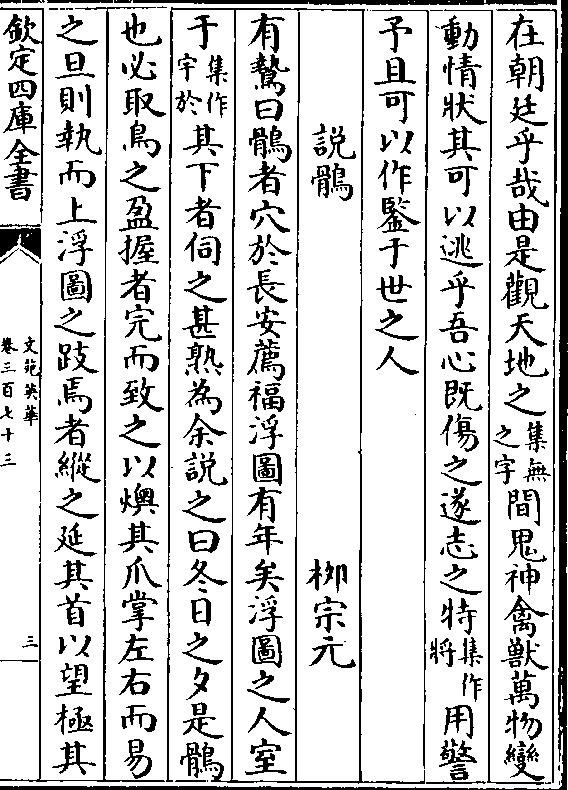 在朝廷乎哉由是觀天地之集無之字間鬼神禽獸萬物變
動情狀其可以逃乎吾心既傷之遂志之特集作將用警
予且可以作鑒于世之人
說鶻 柳宗元
有鷙曰鶻者穴於長安薦福浮圖有年矣浮圖之人室
于集作宇於其下者伺之甚熟為余說之曰冬日之夕是鶻
也必取鳥之盈握者完而致之以燠其爪掌左右而易
之旦則執而上浮圖之跂焉者縱之延其首以望極其
欽定四庫全書
文苑英華
卷三百七十三
三